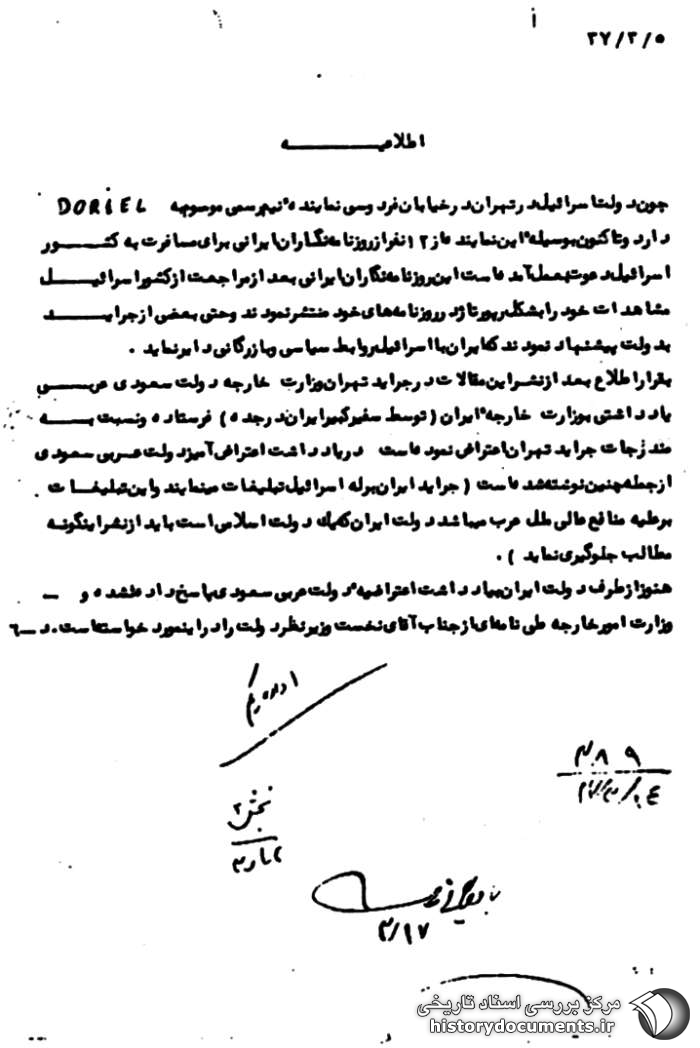 ۳۷/۳/۵
اطلاعیه
چون دولت اسرائیل در تهران در خیابان فردوسی نماینده نیم رسمی موسوم به DORIEL
دارد و تاکنون بوسیله این نماینده از ۱۲ نفر از روزنامه نگاران ایرانی برای مسافرت به کشور
اسرائیل دعوت بعمل آمده است این روزنامه نگاران ایرانی بعد از مراجعت از کشور اسرائیل
مشاهدات خود را بشکل رپورتاژ در روزنامه های خود منتشر نمودند و حتی بعضی از جراید
بدولت پیشنهاد نمودند که ایران با اسرائیل روابط سیاسی و بازرگانی دایر نماید .
بقرار اطلاع بعد از نشر این مقالات در جراید تهران وزارت خارجه دولت سعودی عربی
یادداشتی بوزارت خارجه ایران ( توسط سفیر کبیر ایران در جده ) فرستاده و نسبت به
مندرجات جراید تهران اعتراض نموده است در یادداشت اعتراض آمیز دولت عربی سعودی
از جمله چنین نوشته شده است ( جراید ایران بر له اسرائیل تبلیغات مینمایند و این تبلیغات
بر علیه منافع عالی ملل عرب میباشد دولت ایران که یک دولت اسلامی است باید از نشر اینگونه
مطالب جلوگیری نماید ) .
هنوز از طرف دولت ایران بیادداشت اعتراضیه دولت عربی سعودی پاسخ داده نشده و ـ
وزارت امور خارجه طی نامه ای از جناب آقای نخست وزیر نظر دولت را در اینمورد خواسته است . د ـ ٦
اداره یکم
۳۸۹
۳۷/۳/۰٤
بخش ۲
۳/۱۷
مرکز بررسی اسناد تاریخی
historydocuments.ir